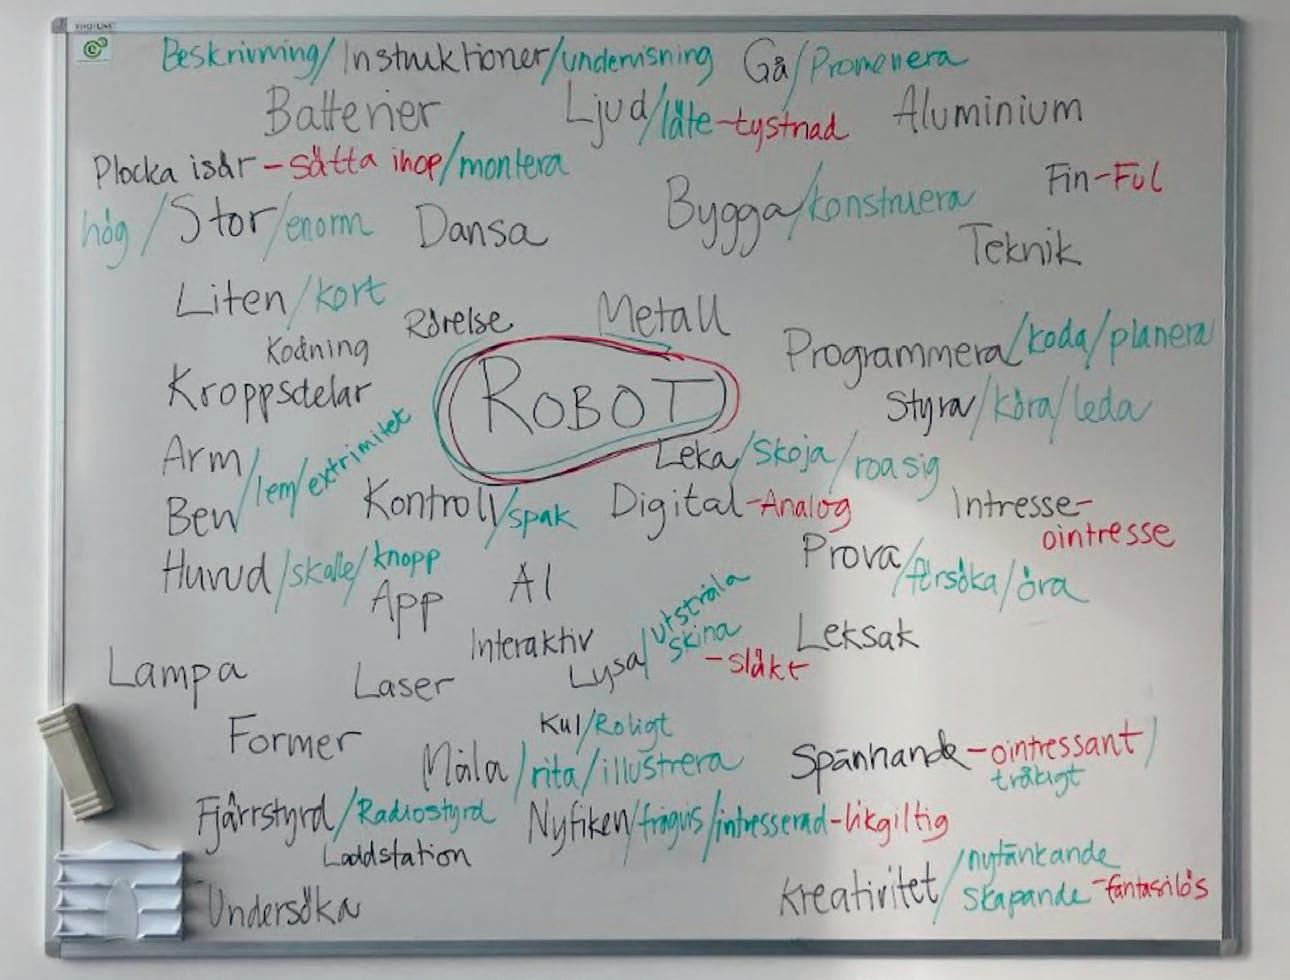 Beskrivning/Instruktioner/undervisning Gå/Promenera
Batterier Ljud/läte-tystnad Aluminium
Plocka isär-sätta ihop/montera Fin-Ful
hög/Stor/enorm Dansa Bygga/konstruera
Teknik
Liten/kort Rörelse Metall
Kodning Programmera/koda/planera
Kroppsdelar ROBOT Styra/köra/leda
Arm Leka/Skoja/roa sig
Ben/lem/extrimitet Kontroll/spak Digital-Analog Intresse-
ointresse
Huvud/skalle/knopp AI Prova/försöka/öva
App
Interaktiv Lysa/utstråla
skina Leksak
-släkt
Lampa Laser
Former Kul/Roligt
Måla/rita/illustrera Spännande-ointressant/
tråkigt
Fjärrstyrd/Radiostyrd Nyfiken/frågvis/intresserad-likgiltig
Laddstation
Undersöka Kreativitet/nytänkande
skapande-fantasilös